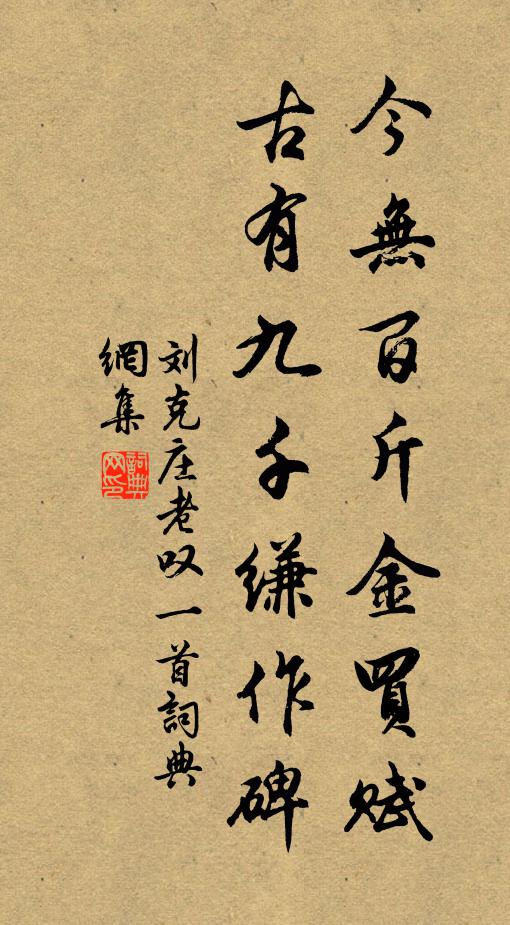 今無百斤金買賦
古有九千縑作碑
刘克庄老叹一首詞典
網集
詞典
网印